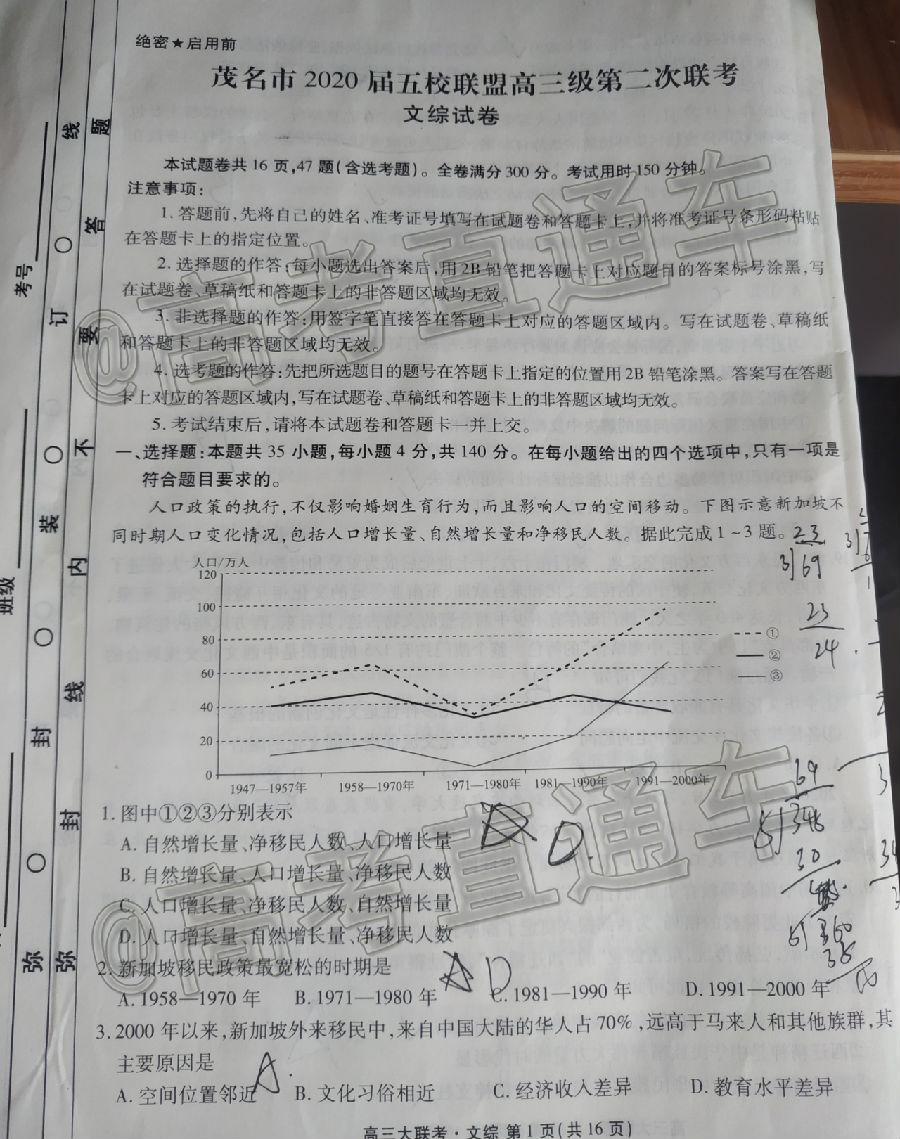 绝密★启用前
茂名市2020届五校联盟高三级第二次联考
文综试卷
本试题卷共16页,47题(含选考题)。全卷满分300分。考试用时150分钟。
注意事项:
1.答题前,先将自己的姓名、准考证号填写在试题卷和答题卡上,并将准考证号条形码粘贴
在答题卡上的指定位置。
2.选择题的作答:每小题选出答案后,用2B铅笔把答题卡上对应题目的答案标号涂黑,写
在试题卷、草稿纸和答题卡上的非答题区域均无效。
3.非选择题的作答:用签字笔直接答在答题卡上对应的答题区域内。写在试题卷、草稿纸
和答题卡上的非答题区域均无效。
4.选考题的作答:先把所选题目的题号在答题卡上指定的位置用2B铅笔涂黑。答案写在答题
卡上对应的答题区域内,写在试题卷、草稿纸和答题卡上的非答题区域均无效。
5.考试结束后,请将本试题卷和答题卡一并上交。
一、选择题:本题共35小题,每小题4分,共140分。在每小题给出的四个选项中,只有一项是
符合题目要求的。
人口政策的执行,不仅影响婚姻生育行为,而且影响人口的空间移动。下图示意新加坡不
同时期人口变化情况,包括人口增长量、自然增长量和净移民人数。据此完成1~3题。
人口/万人
120
100
80
60
40
20
0
1947—1957年 1958—1970年 1971—1980年 1981—1990年 1991—2000年
①
②
③
1.图中①②③分别表示
A.自然增长量、净移民人数、人口增长量
B.自然增长量、人口增长量、净移民人数
C.人口增长量、净移民人数、自然增长量
D.人口增长量、自然增长量、净移民人数
D.
2.新加坡移民政策最宽松的时期是
D
A.1958—1970年 B.1971—1980年 C.1981—1990年 D.1991—2000年
3.2000年以来,新加坡外来移民中,来自中国大陆的华人占70%,远高于马来人和其他族群,其
主要原因是
A.
A.空间位置邻近 B.文化习俗相近 C.经济收入差异 D.教育水平差异
高三大联考·文综 第1页(共16页)
考号
班级
弥 封 装 订 线
弥 封 线 内 不 要 答 题
23
3)69
23
24
69
@高考直通车
@高考直通车